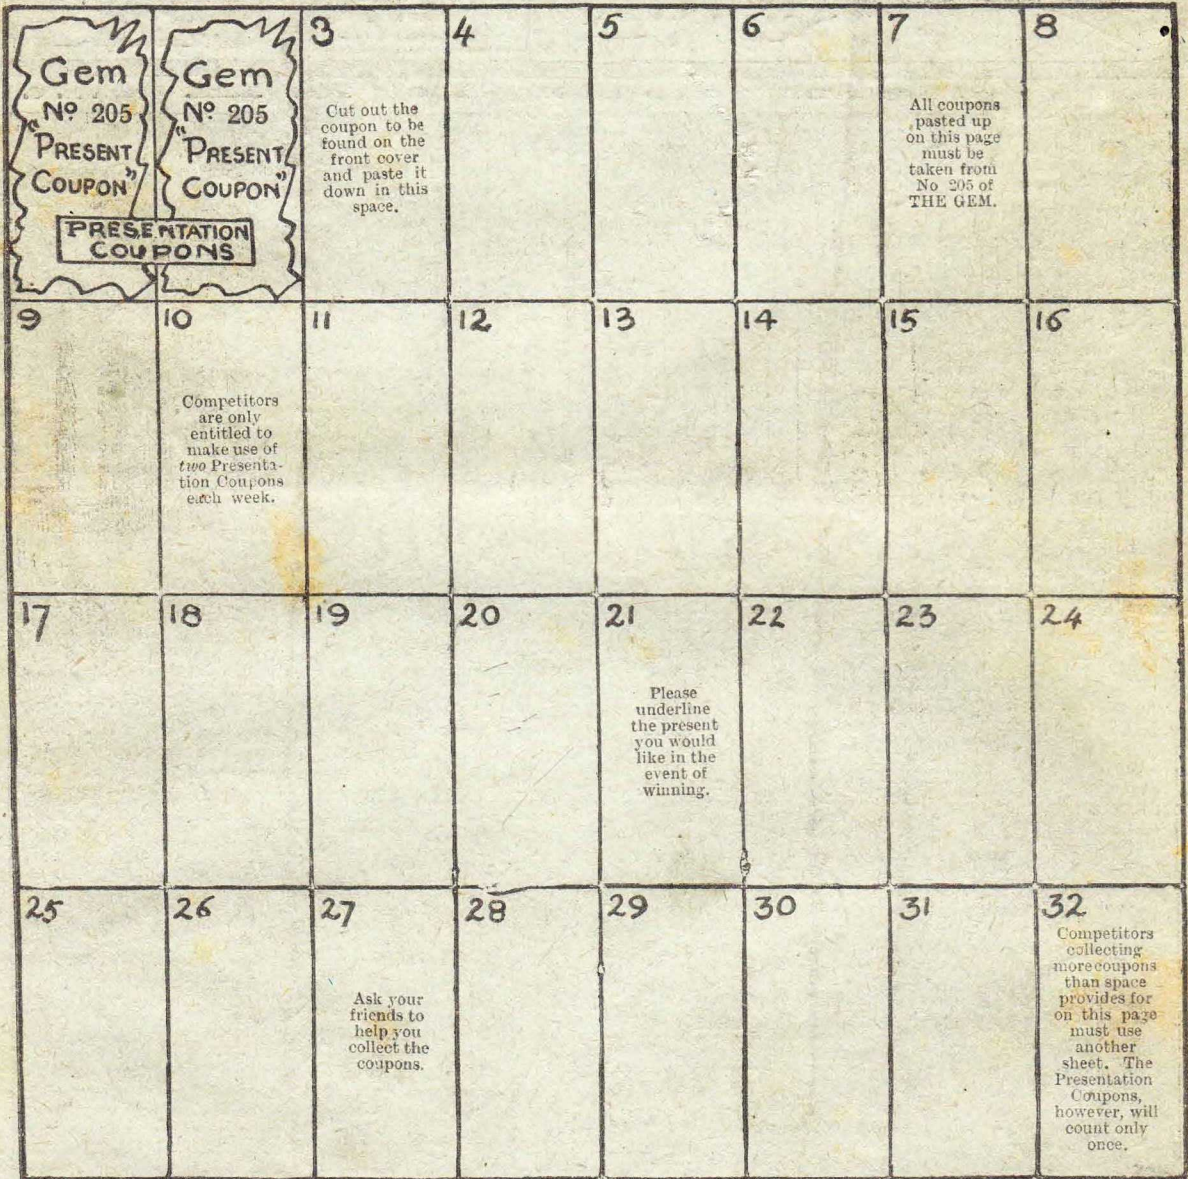 Gem
No 205
"PRESENT
COUPON"
Gem
No 205
"PRESENT
COUPON"
PRESENTATION
COUPONS
3
Cut out the
coupon to be
found on the
front cover
and paste it
down in this
space.
4
5
6
7
All coupons
pasted up
on this page
must be
taken from
No 205 of
THE GEM.
8
9
10
Competitors
are only
entitled to
make use of
two Presenta-
tion Coupons
each week.
11
12
13
14
15
16
17
18
19
20
21
Please
underline
the present
you would
like in the
event of
winning.
22
23
24
25
26
27
Ask your
friends to
help you
collect the
coupons.
28
29
30
31
32
Competitors
collecting
more coupons
than space
provides for
on this page
must use
another
sheet. The
Presentation
Coupons,
however, will
count only
once.